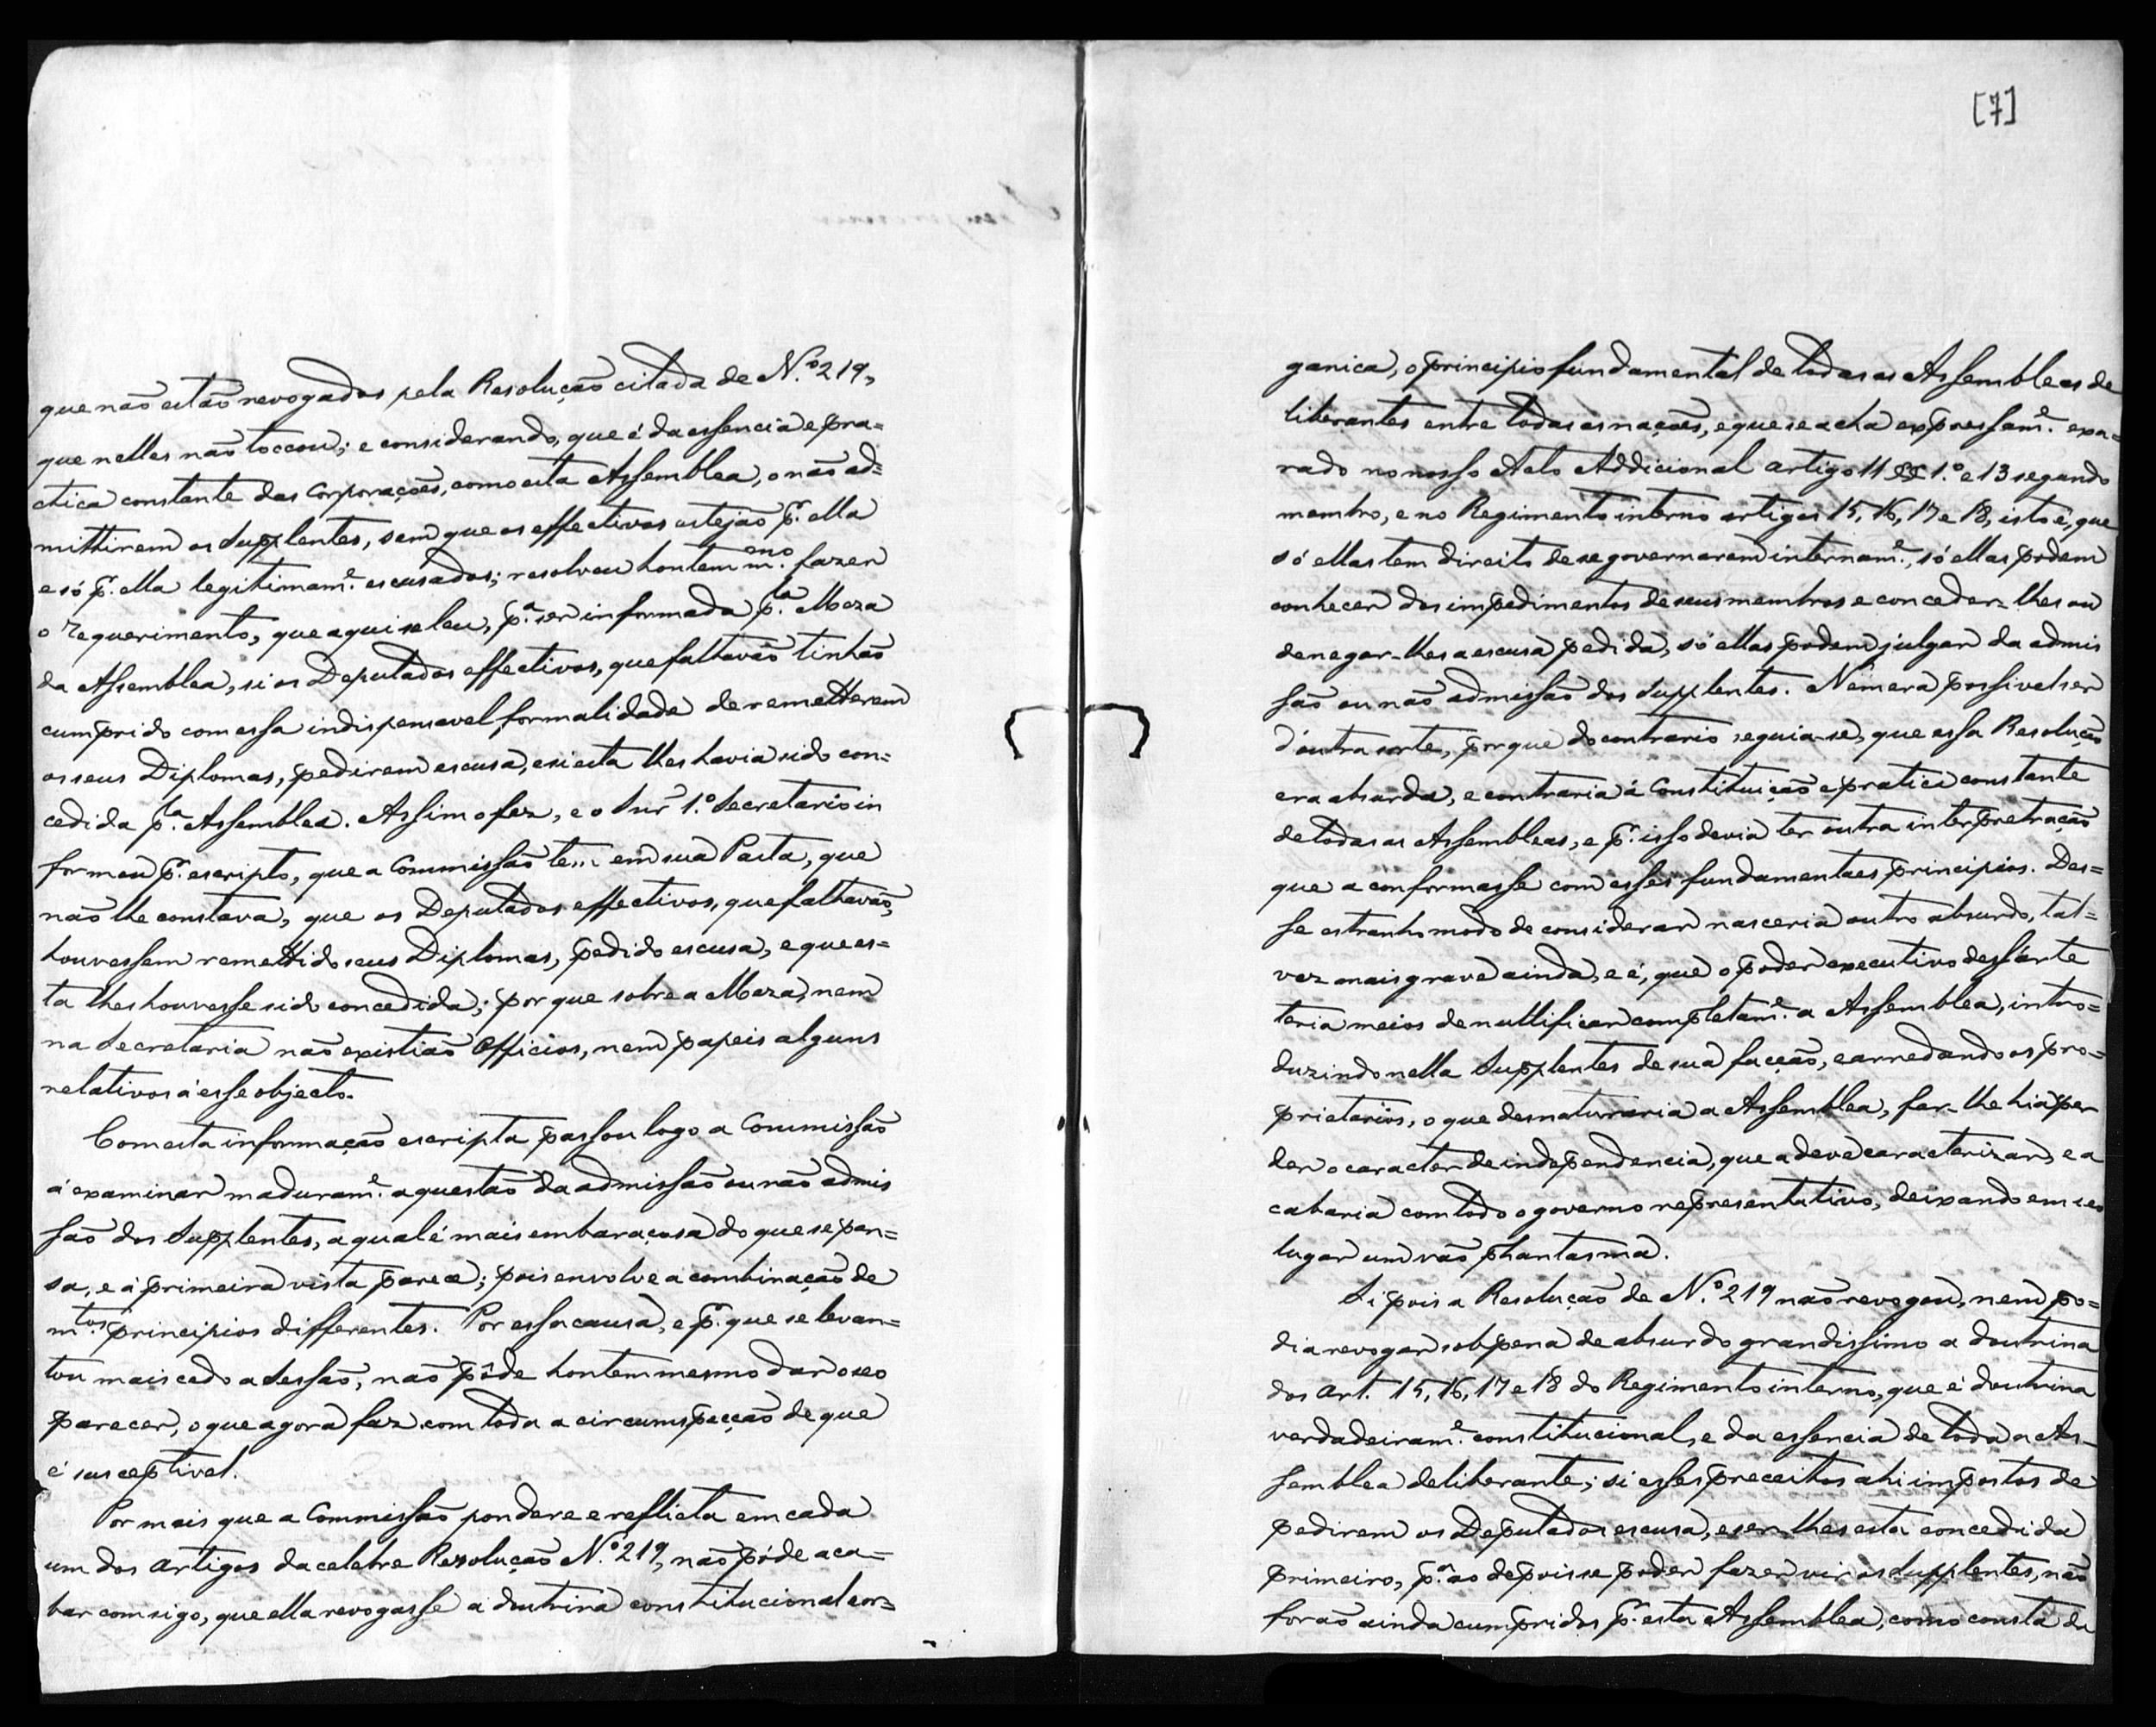 que não estão revogados pela Resolução citada de N.º 219,
que nelles não toccou; e considerando, que é da essencia e pra=
ctica constante das Corporações, como esta Assemblea, o não ad=
mittirem os Supplentes, sem que os effectivos estejão p.r ella
e só p.r ella legitimam.e escusados; resolveu hontem m.mo fazer
o requerimento, que aqui se leu, p.a ser informada p.la Meza
da Assemblea, si os Deputados effectivos, que faltavão tinhão
cumprido com essa indispensavel formalidade de remetterem
os seus Diplomas, pedirem escusa, e si esta lhes havia sido con=
cedida p.la Assemblea. Assim o fez, e o Snr 1.º Secretario in
formou p.r escripto, que a Commissão tem em sua Pasta, que
não lhe constava, que os Deputados effectivos, que faltavão,
houvessem remettido seus Diplomas, pedido escusa, e que es=
ta lhes houvesse sido concedida; por que sobre a Meza, nem
na Secretaria não existião Officios, nem papeis alguns
relativos á esse objecto.
Com esta informação escripta passou logo a Commissão
á examinar maduram.e a questão da admissão ou não admis
são dos Supplentes, a qual é mais embaraçosa do que se pen=
sa, e á primeira vista parece; pois envolve a combinação de
m.tos principios differentes. Por essa causa, e p.r que se levan=
tou mais cedo a Sessão, não pôde hontem mesmo dar o seo
parecer, o que agora faz com toda a circumspecção de que
é susceptivel.
Por mais que a Commissão pondere e reflicta em cada
um dos artigos da celebre Resolução N.º 219, não póde aca=
bar comsigo, que ella revogasse a doutrina constitucional or=
[7]
ganica, o principio fundamental de todas as Assembleas de
liberantes entre todas as nações, e que se acha expressam.e exa=
rado no nosso Acto Addicional artigo 11 §§ 1.º e 13 segundo
membro, e no Regimento interno artigos 15, 16, 17 e 18, isto é, que
só ellas tem direito de se governarem internam.e, só ellas podem
conhecer dos impedimentos de seus membros e conceder-lhes ou
denegar-lhes a escusa pedida, só ellas podem julgar da admis
são ou não admissão dos Supplentes. Nem era possivel ser
d'outra sorte, porque do contrario seguia-se, que essa Resolução
era absurda, e contraria á Constituição e pratica constante
de todas as Assembleas, e p.r isso devia ter outra interpretração
que a conformasse com esses fundamentaes principios. Des=
se estranho modo de considerar nasceria outro absurdo, tal=
vez mais grave ainda, e é, que o poder executivo dess'arte
teria meios de nullificar completam.e a Assemblea, intro=
duzindo nella Supplentes de sua facção, e arredando os pro=
prietarios, o que desnaturaria a Assemblea, far-lhe hia per
der o caracter de independencia, que a deve caracterizar, e a
cabaria com todo o governo representativo, deixando em seo
lugar um vão phantasma.
Si pois a Resolução de N.º 219 não revogou, nem po=
dia revogar sob pena de absurdo grandissimo a doutrina
dos Art. 15, 16, 17 e 18 do Regimento interno, que é doutrina
verdadeiram.e constitucional, e da essencia de toda a As-
semblea deliberante; si esses preceitos ahi impostos de
pedirem os Deputados escusa, e ser-lhes esta concedida
primeiro, p.a ao depois se poder fazer vir os Supplentes, não
forão ainda cumpridos p.r esta Assemblea, como consta da